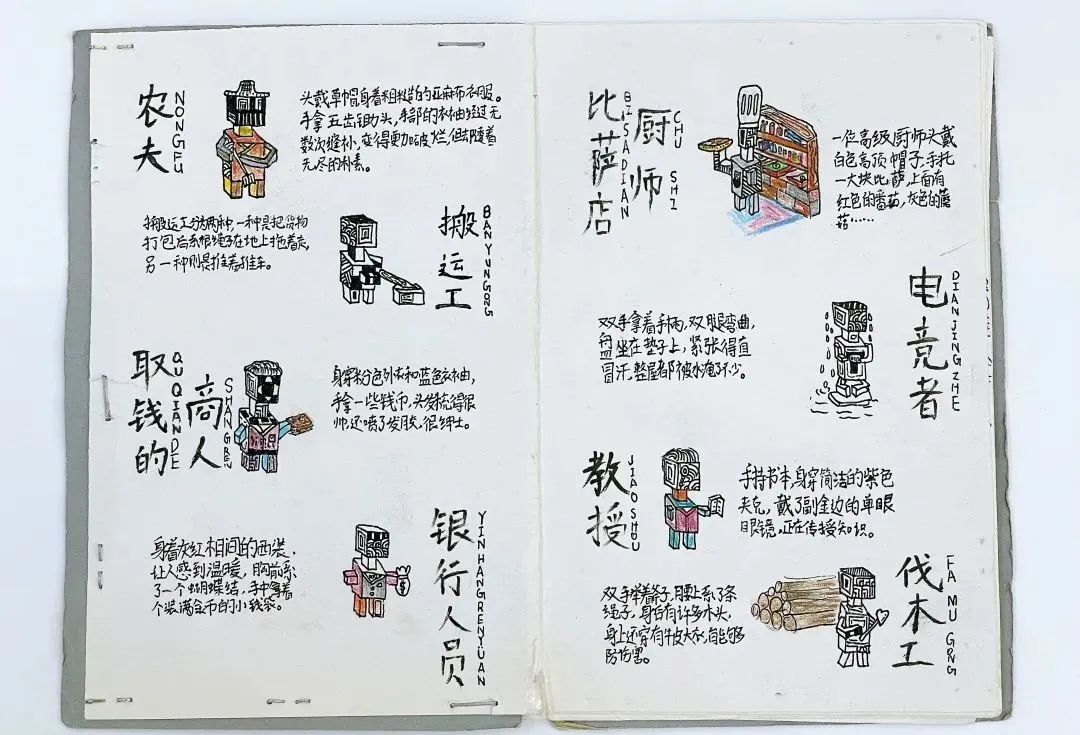 农夫
NONGFU
头戴草帽,身着粗糙的亚麻布衣服。
手拿五齿锄头,手部的衣袖经过无
数次缝补,变得更加破烂,但却随着
无尽的朴素。
搬运工
BANYUNGONG
搬运工分为两种,一种是把货物
打包后系根绳子在地上拖着走,
另一种则是推着推车。
取钱的
QUQIANDE
商人
SHANGREN
身穿粉色外衣和蓝色衣袖,
手拿一些钱币,头发梳得很
帅,还喷了发胶,很绅士。
银行人员
YINHANGRENYUAN
身着灰红相间的西装,
让人感到温暖,胸前系
了一个蝴蝶结,手中拿着
个装满金币的小钱袋。
比萨店
BISADIAN
厨师
CHUSHI
一位高级厨师头戴
白色高顶帽子,手托
一大块比萨,上面有
红色的番茄,灰色的蘑
菇……
电竞者
DIANJINGZHE
双手拿着手柄,双腿弯曲,
盘坐在垫子上,紧张得直
冒汗,整屋都被水淹了不少。
教授
JIAOSHOU
手持书本,身穿简洁的紫色
夹克,戴了副金边的单眼
眼镜,正在传授知识。
伐木工
FAMUGONG
双手举着斧子,腰上系了条
绳子,身后有许多木头,
身上还穿有牛皮大衣,能够
防伤害。